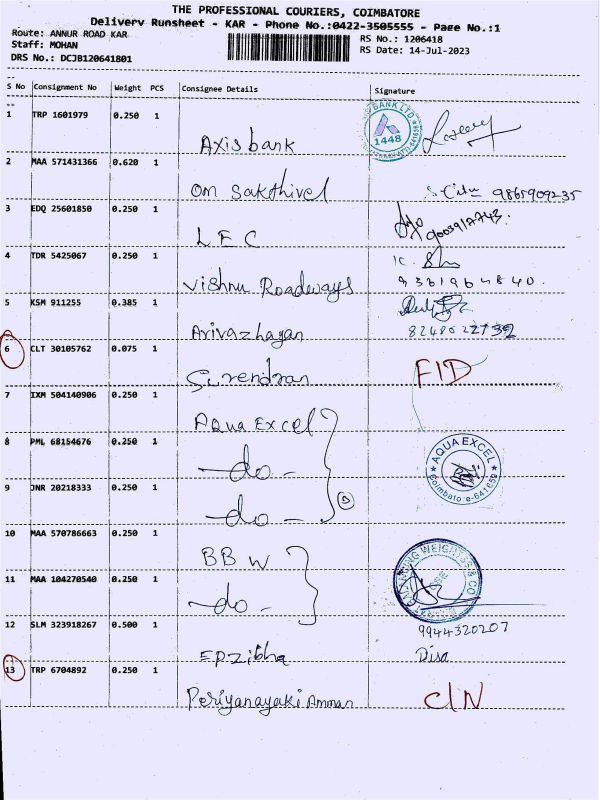 THE PROFESSIONAL COURIERS, COIMBATORE
Delivery Runsheet - KAR - Phone No.:0422-3505555 - Page No.:1
Route: ANNUR ROAD KAR
RS No.: 1206418
Staff: MOHAN
RS Date: 14-Jul-2023
DRS No.: DCJB120641801
S No Consignment No Weight PCS Consignee Details Signature
1 TRP 1601979 0.250 1
Axis bank
BANK LTD
1448
2 MAA 571431366 0.620 1
Om Sakthivel
9865909235
3 EDQ 25601850 0.250 1
LEC
9003917743.
4 TDR 5425067 0.250 1
Vishnu Roadways
9361964840.
5 KSM 911255 0.385 1
Arivazhagan
6 CLT 30105762 0.075 1
Surendran
FID
7 IXM 504140906 0.250 1
Aqua Excel
8 PML 68154676 0.250 1
-do-
AQUA EXCEL
9 JNR 20218333 0.250 1
-do-
10 MAA 570786663 0.250 1
BBW
11 MAA 104270540 0.250 1
-do-
12 SLM 323918267 0.500 1
9944320207
Epzibha
Disa
13 TRP 6704892 0.250 1
Periyanayaki Amman
CIN